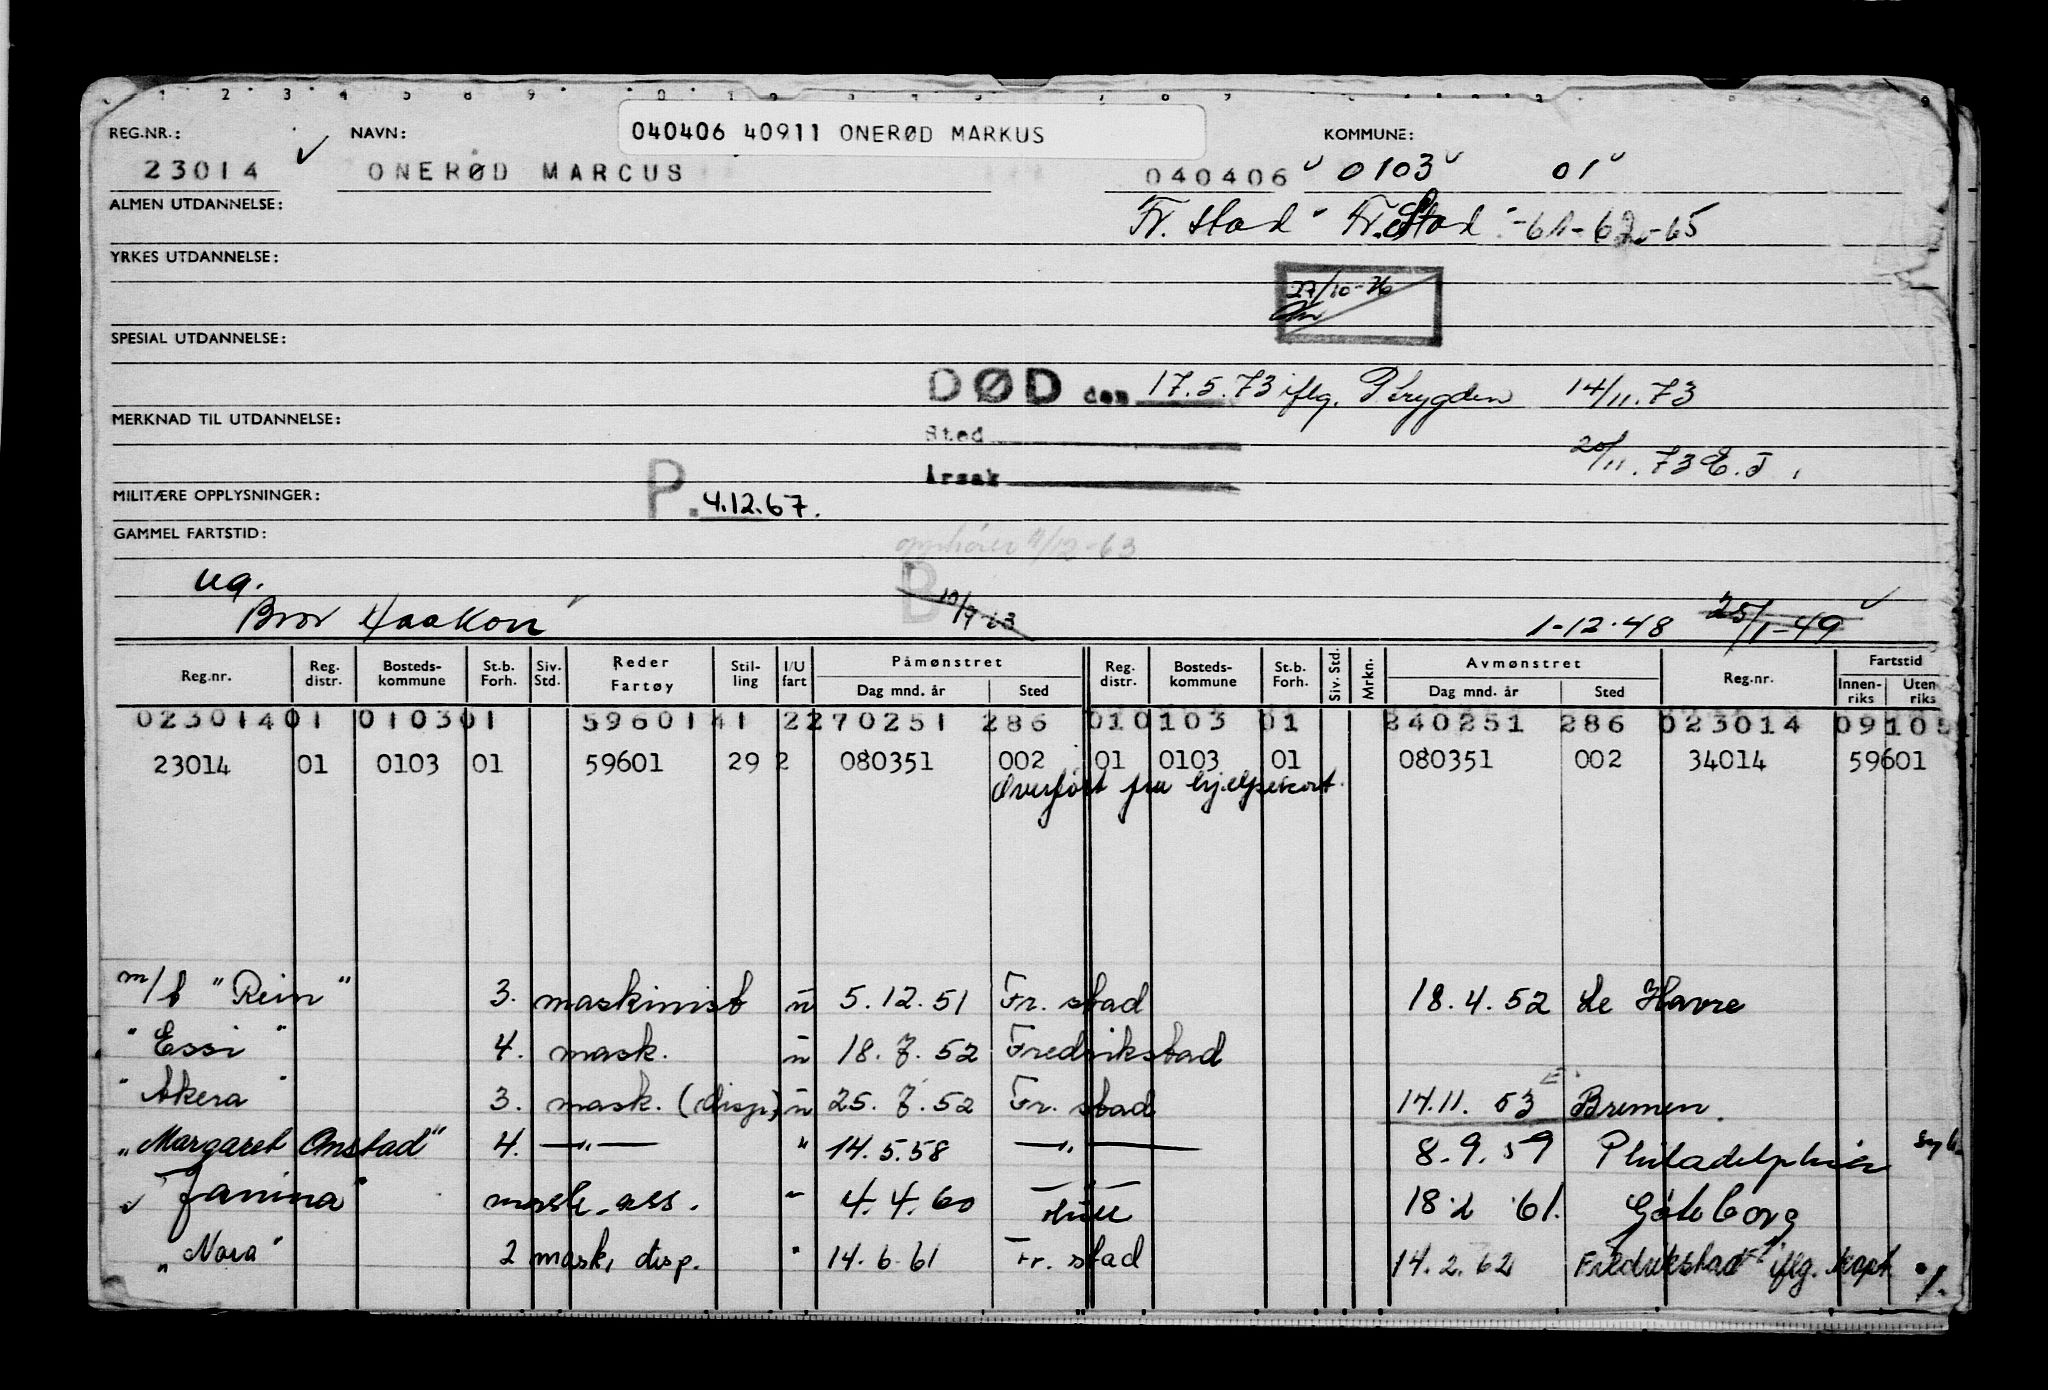 040406 40911 ONERØD MARKUS
REG.NR.: NAVN: KOMMUNE:
23014 ONERØD MARCUS 040406 0103 01
ALMEN UTDANNELSE: Fr. stad Fr. Stad -61-62-65
YRKES UTDANNELSE:
27/10-76
SPESIAL UTDANNELSE:
DØD den 17.5.73 iflg. P.trygden 14/11.73
MERKNAD TIL UTDANNELSE:
Sted
20/11.73 E.J.
Årsak
MILITÆRE OPPLYSNINGER: P. 4.12.67.
GAMMEL FARTSTID: opphører 4/12-63
ug. B
Bror Haakon 1-12-48 25/1-49
Reg.nr. Reg. distr. Bosteds-kommune St.b. Forh. Siv. Std. Reder Fartøy Stil-ling I/U fart Påmønstret Dag mnd. år Sted Reg. distr. Bosteds-kommune St.b. Forh. Siv. Std. Mrkn. Avmønstret Dag mnd. år Sted Reg.nr. Fartstid Innen-riks Uten riks
023014 01 0103 01 59601 41 2 270251 286 01 0103 01 240251 286 023014 09105
23014 01 0103 01 59601 29 2 080351 002 01 0103 01 080351 002 34014 59601
Overført fra hjelpekort.
m/t "Rein" 3. maskinist u 5.12.51 Fr. stad 18.4.52 Le Havre
" Essi " 4. mask. u 18.7.52 Fredrikstad
" Akera " 3. mask. (disp.) u 25.7.52 Fr. stad 14.11.53 Bremen.
"Margaret Onstad" 4. —"— " 14.5.58 —"— 8.9.59 Philadelphia
" Janina " mask. ass. " 4.4.60 18.2.61. Göteborg
"Nora" 2 mask, disp. " 14.6.61 Fr. stad 14.2.62 Fredrikstad iflg. kapt.